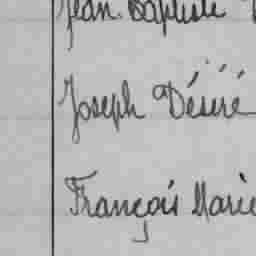 Jean Baptiste
Joseph Désiré
François Marie